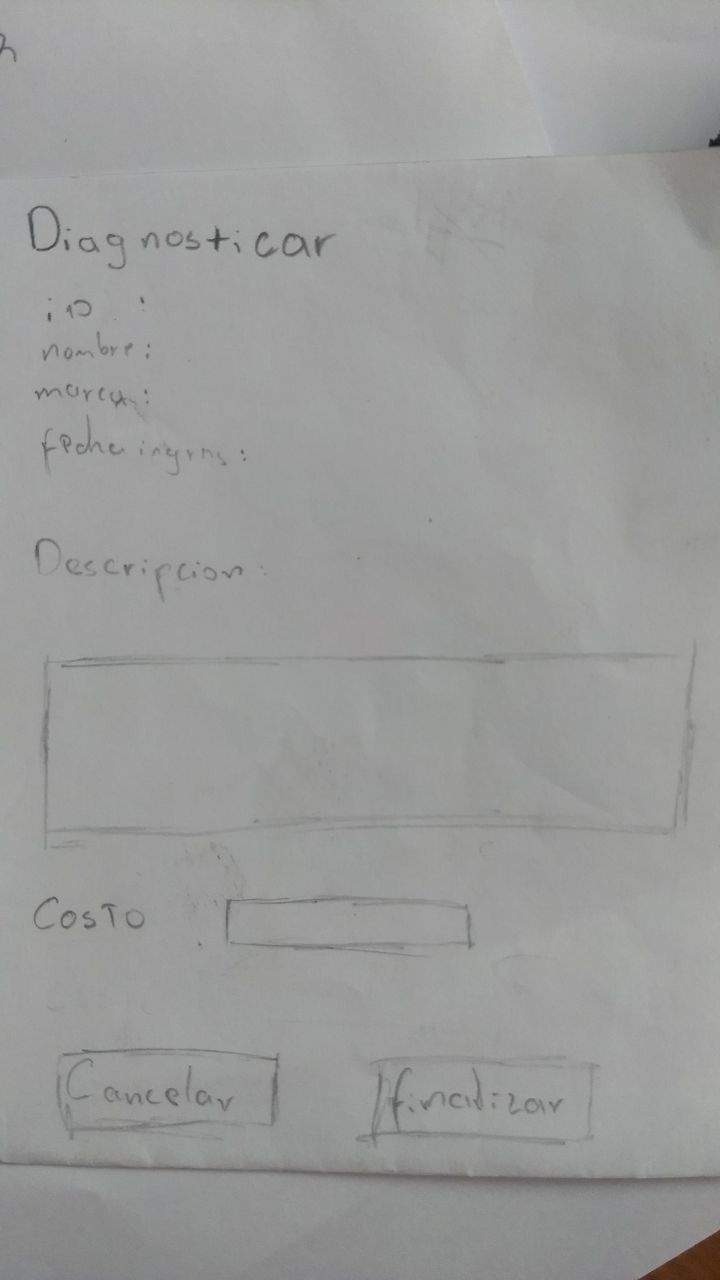 Diagnosticar
ID :
nombre:
marca:
fecha ingreso:
Descripcion:
Costo
Cancelar finalizar